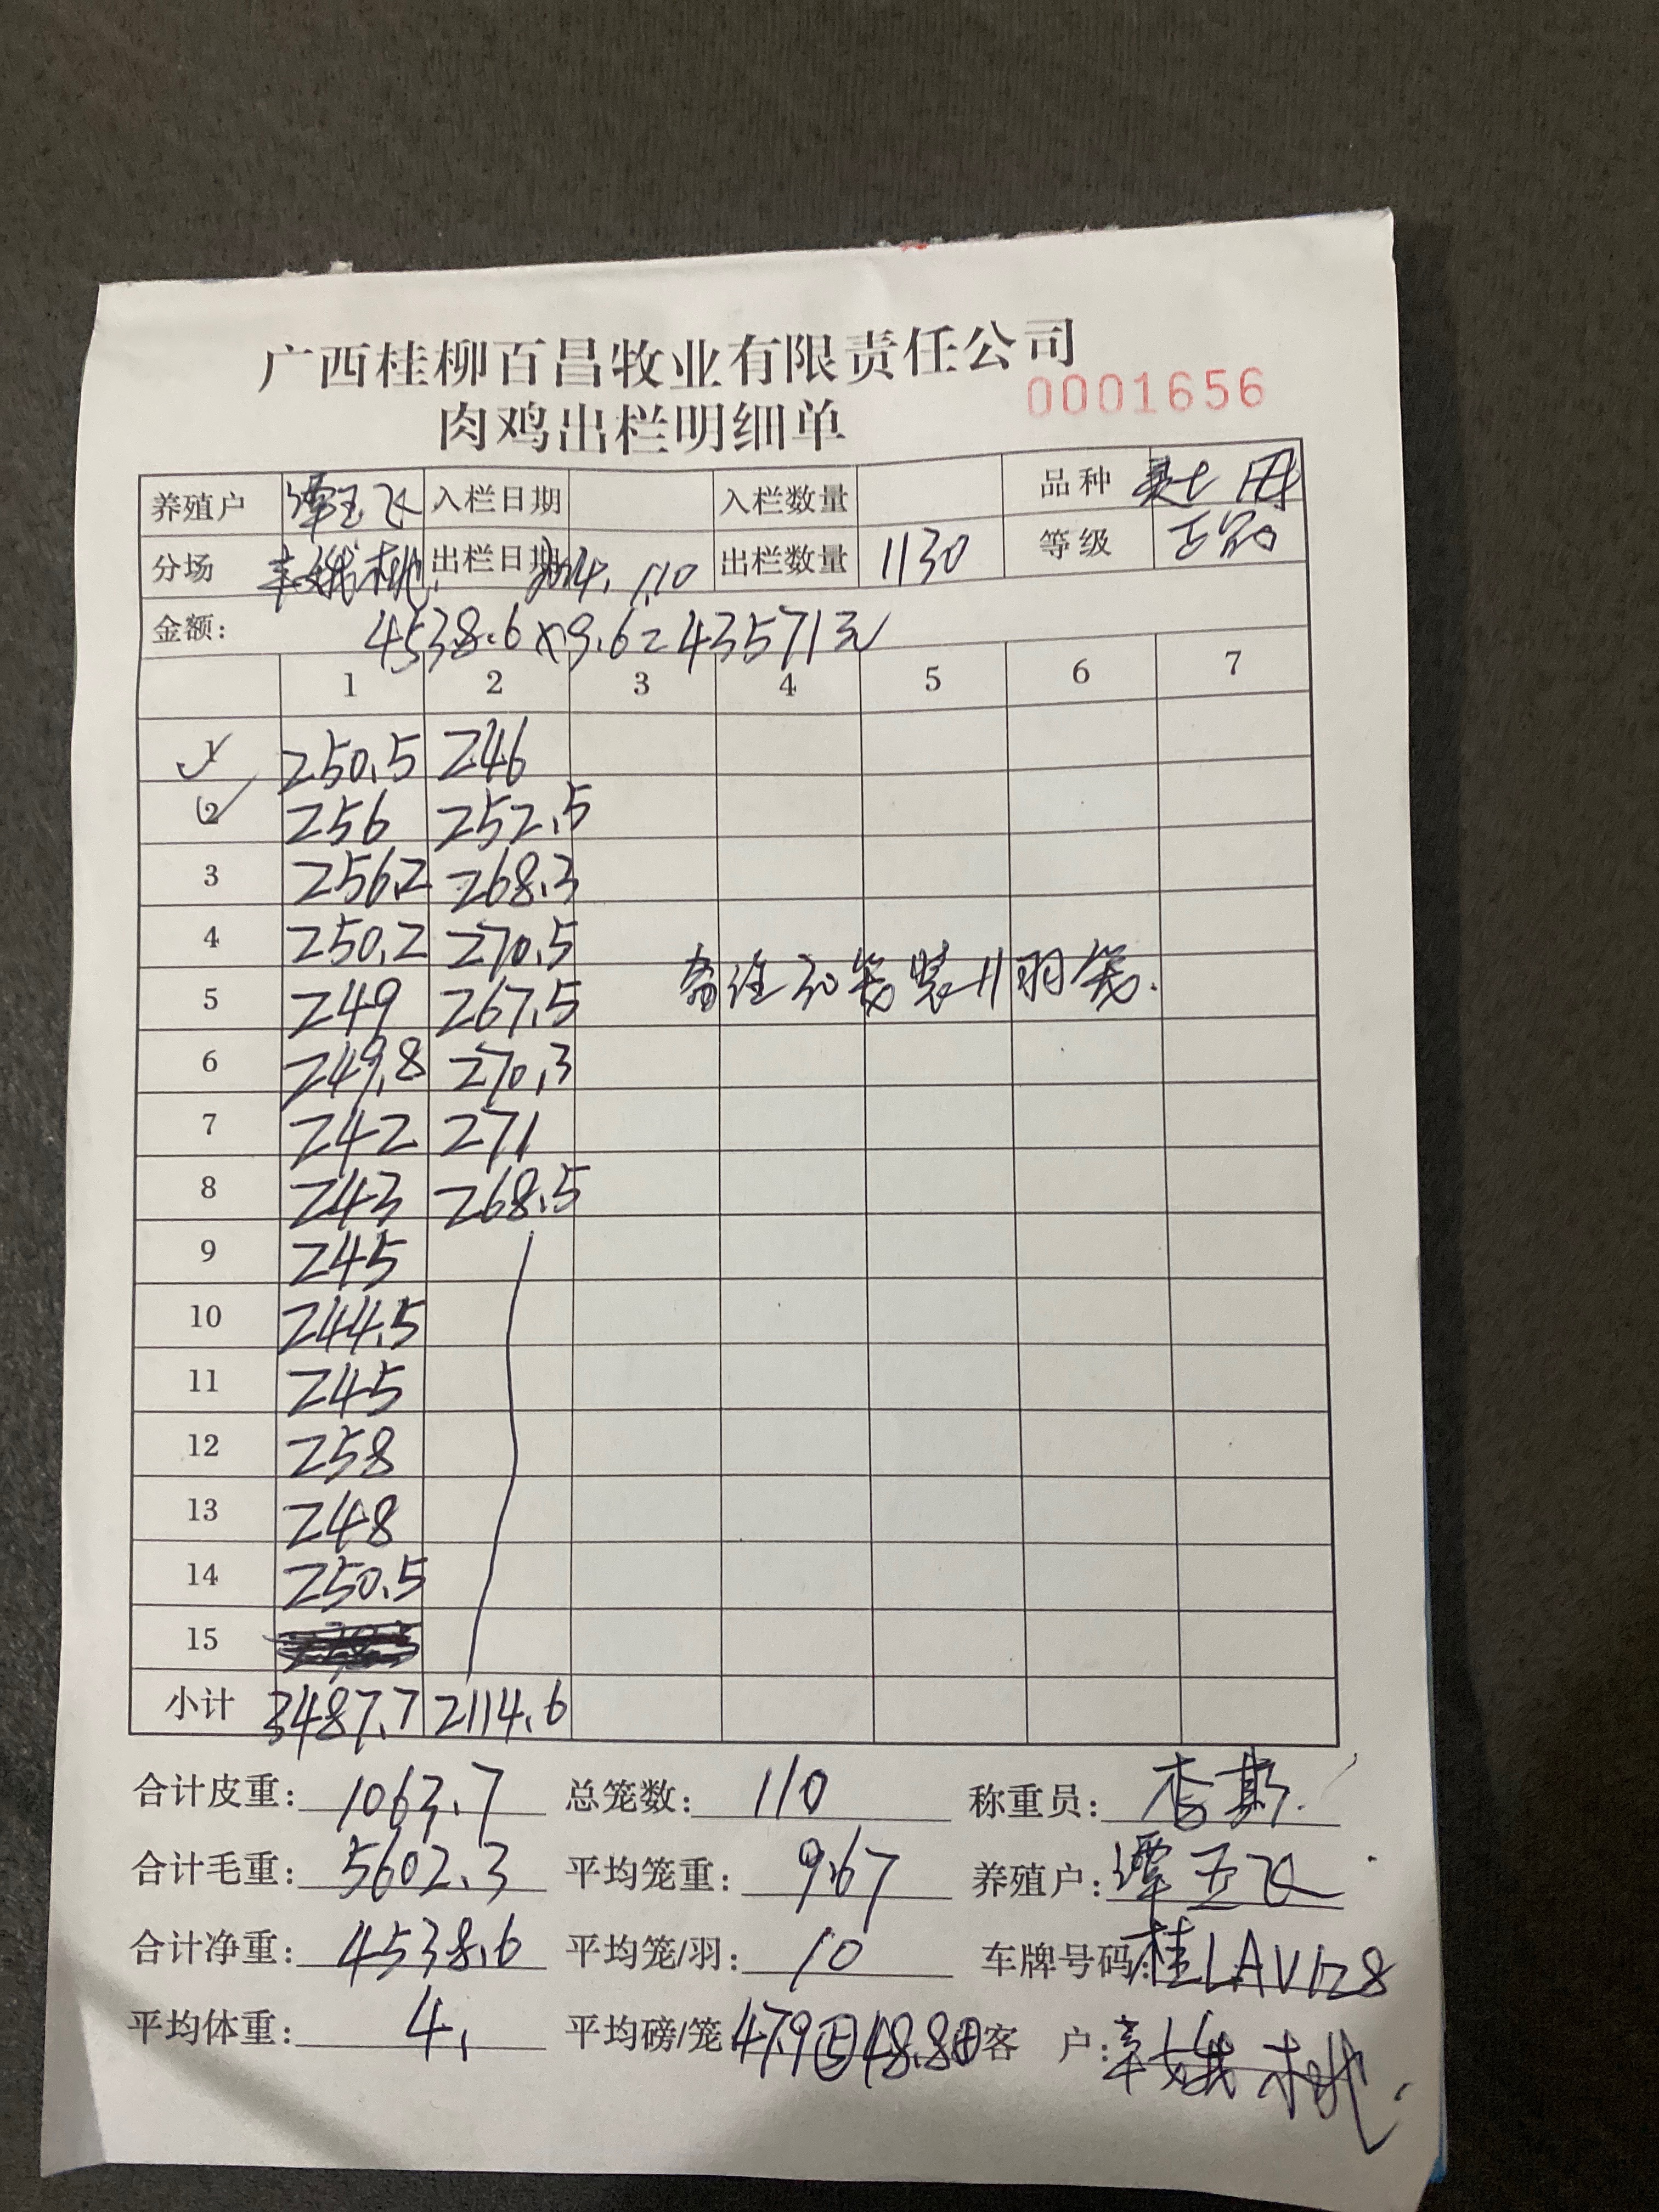 广西桂柳百昌牧业有限责任公司
0001656
肉鸡出栏明细单
养殖户 谭玉飞 入栏日期 入栏数量 品种
分场 出栏日期 出栏数量 1130 等级
金额: 4538.6×9.6=43571元
1 2 3 4 5 6 7
1 250.5 246
2 256 252.5
3 256.2 268.3
4 250.2 270.5
5 249 267.5 备注30笼装11羽笼.
6 249.8 270.3
7 242 271
8 243 268.5
9 245
10 244.5
11 245
12 258
13 248
14 250.5
15
小计 3487.7 2114.6
合计皮重: 1063.7 总笼数: 110 称重员: 李斯
合计毛重: 5602.3 平均笼重: 9.67 养殖户: 谭玉飞
合计净重: 4538.6 平均笼/羽: 10 车牌号码: 桂LAV128
平均体重: 4. 平均磅/笼 客 户: